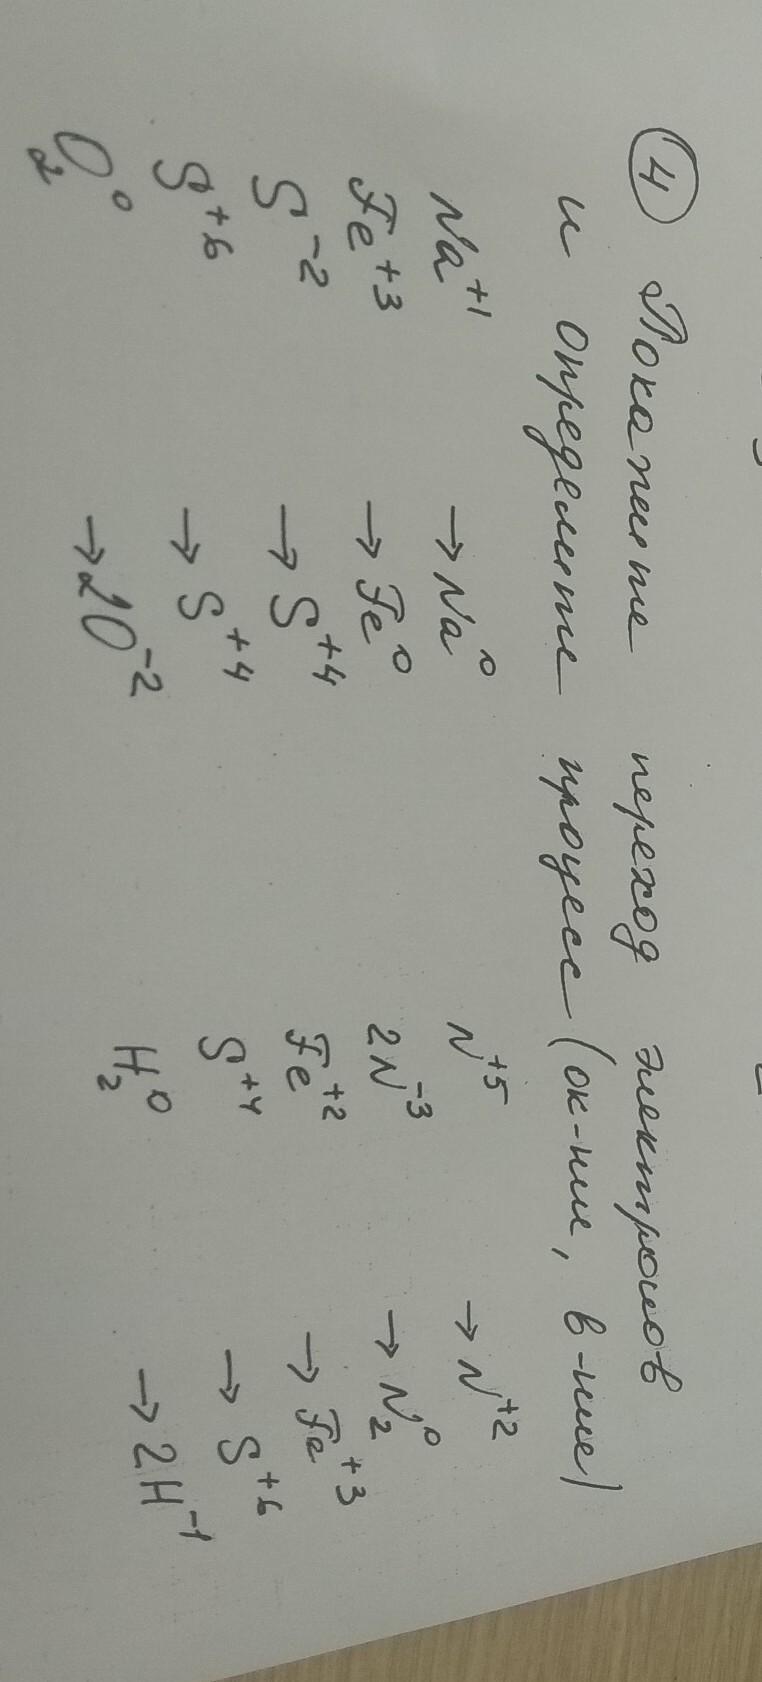 ④ Покажите переход электронов
и определите процесс (ок-ние, в-ние)
Na⁺¹ → Na⁰ N⁺⁵ → N⁺²
Fe⁺³ → Fe⁰ 2N⁻³ → N₂⁰
S⁻² → S⁺⁴ Fe⁺² → Fe⁺³
S⁺⁶ → S⁺⁴ S⁺⁴ → S⁺⁶
O₂⁰ → 2O⁻² H₂⁰ → 2H⁻¹